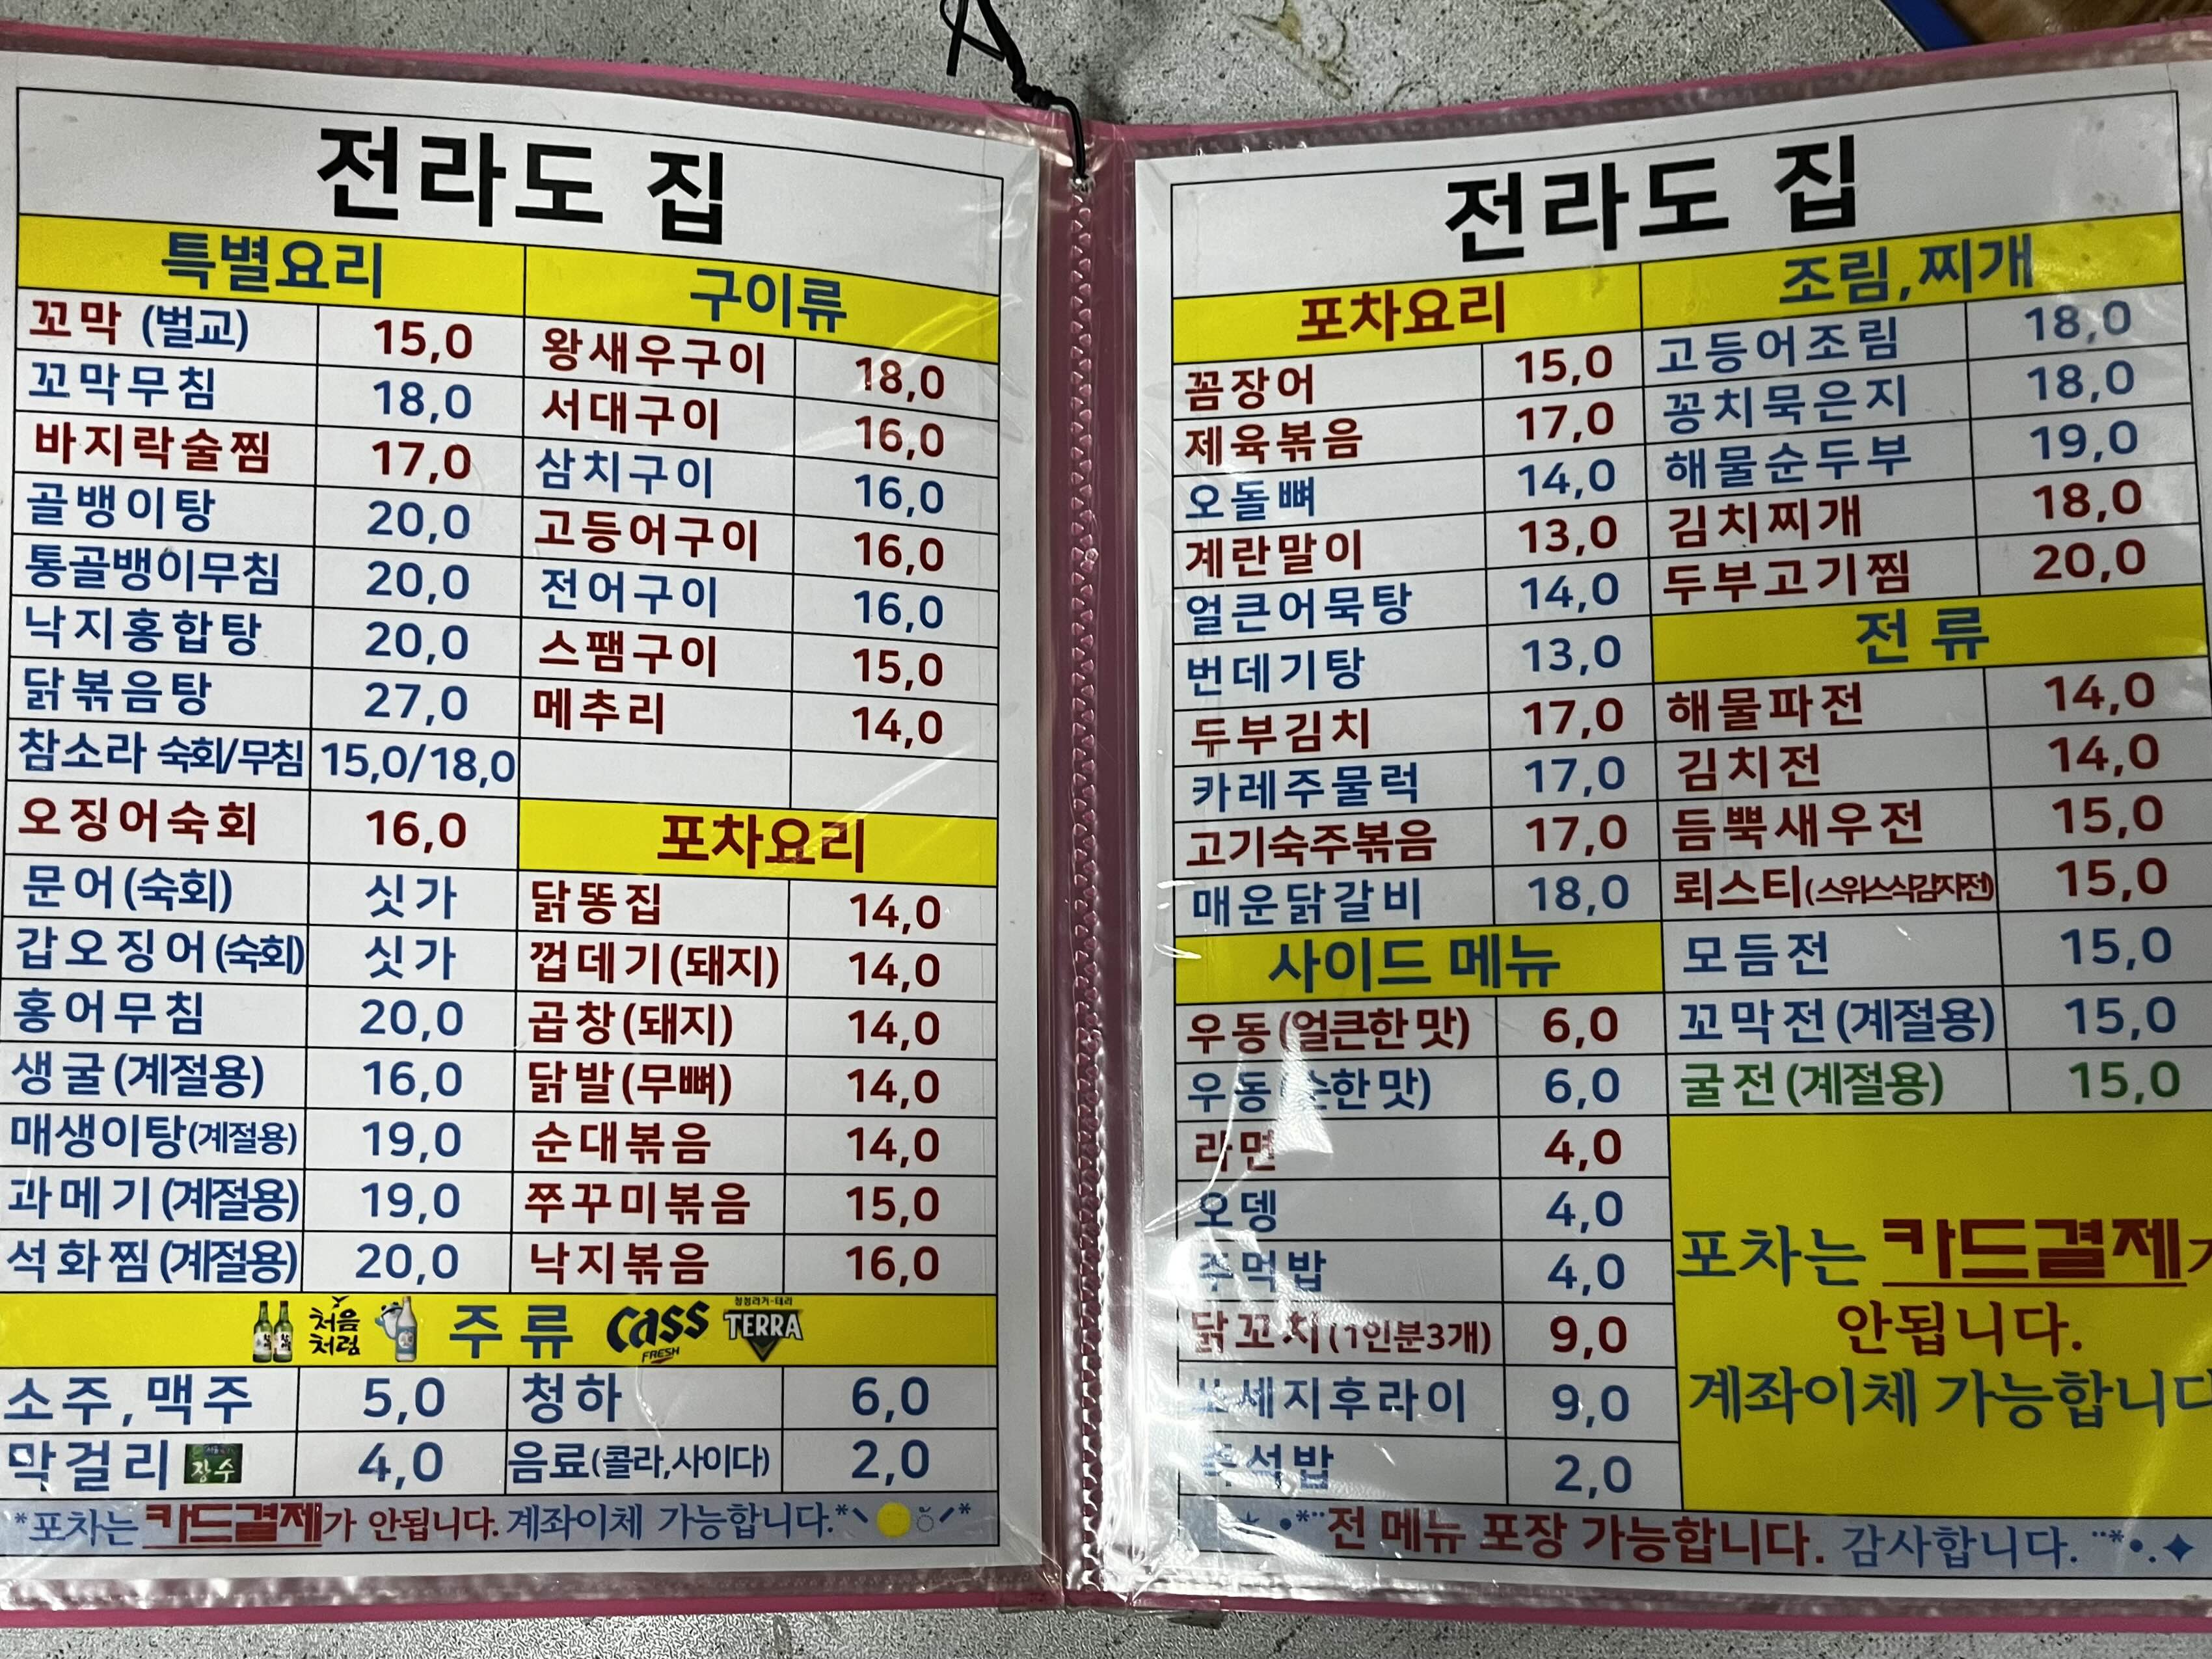 전라도 집
특별요리
꼬막 (벌교) 15,0
꼬막무침 18,0
바지락술찜 17,0
골뱅이탕 20,0
통골뱅이무침 20,0
낙지홍합탕 20,0
닭볶음탕 27,0
참소라 숙회/무침 15,0/18,0
오징어숙회 16,0
문어(숙회) 싯가
갑오징어(숙회) 싯가
홍어무침 20,0
생굴(계절용) 16,0
매생이탕(계절용) 19,0
과메기(계절용) 19,0
석화찜(계절용) 20,0
구이류
왕새우구이 18,0
서대구이 16,0
삼치구이 16,0
고등어구이 16,0
전어구이 16,0
스팸구이 15,0
메추리 14,0
포차요리
닭똥집 14,0
껍데기(돼지) 14,0
곱창(돼지) 14,0
닭발(무뼈) 14,0
순대볶음 14,0
쭈꾸미볶음 15,0
낙지볶음 16,0
처음
처럼
주류
cass
FRESH
청정라거-테라
TERRA
소주,맥주 5,0 청하 6,0
막걸리 장수 4,0 음료(콜라,사이다) 2,0
*포차는 카드결제가 안됩니다. 계좌이체 가능합니다.*
전라도 집
포차요리
꼼장어 15,0
제육볶음 17,0
오돌뼈 14,0
계란말이 13,0
얼큰어묵탕 14,0
번데기탕 13,0
두부김치 17,0
카레주물럭 17,0
고기숙주볶음 17,0
매운닭갈비 18,0
사이드 메뉴
우동(얼큰한 맛) 6,0
우동(순한 맛) 6,0
라면 4,0
오뎅 4,0
주먹밥 4,0
닭꼬치(1인분3개) 9,0
쏘세지후라이 9,0
즉석밥 2,0
조림,찌개
고등어조림 18,0
꽁치묵은지 18,0
해물순두부 19,0
김치찌개 18,0
두부고기찜 20,0
전류
해물파전 14,0
김치전 14,0
듬뿍새우전 15,0
뢰스티(스위스식감자전) 15,0
모듬전 15,0
꼬막전(계절용) 15,0
굴전(계절용) 15,0
포차는 카드결제가
안됩니다.
계좌이체 가능합니다
전 메뉴 포장 가능합니다. 감사합니다.